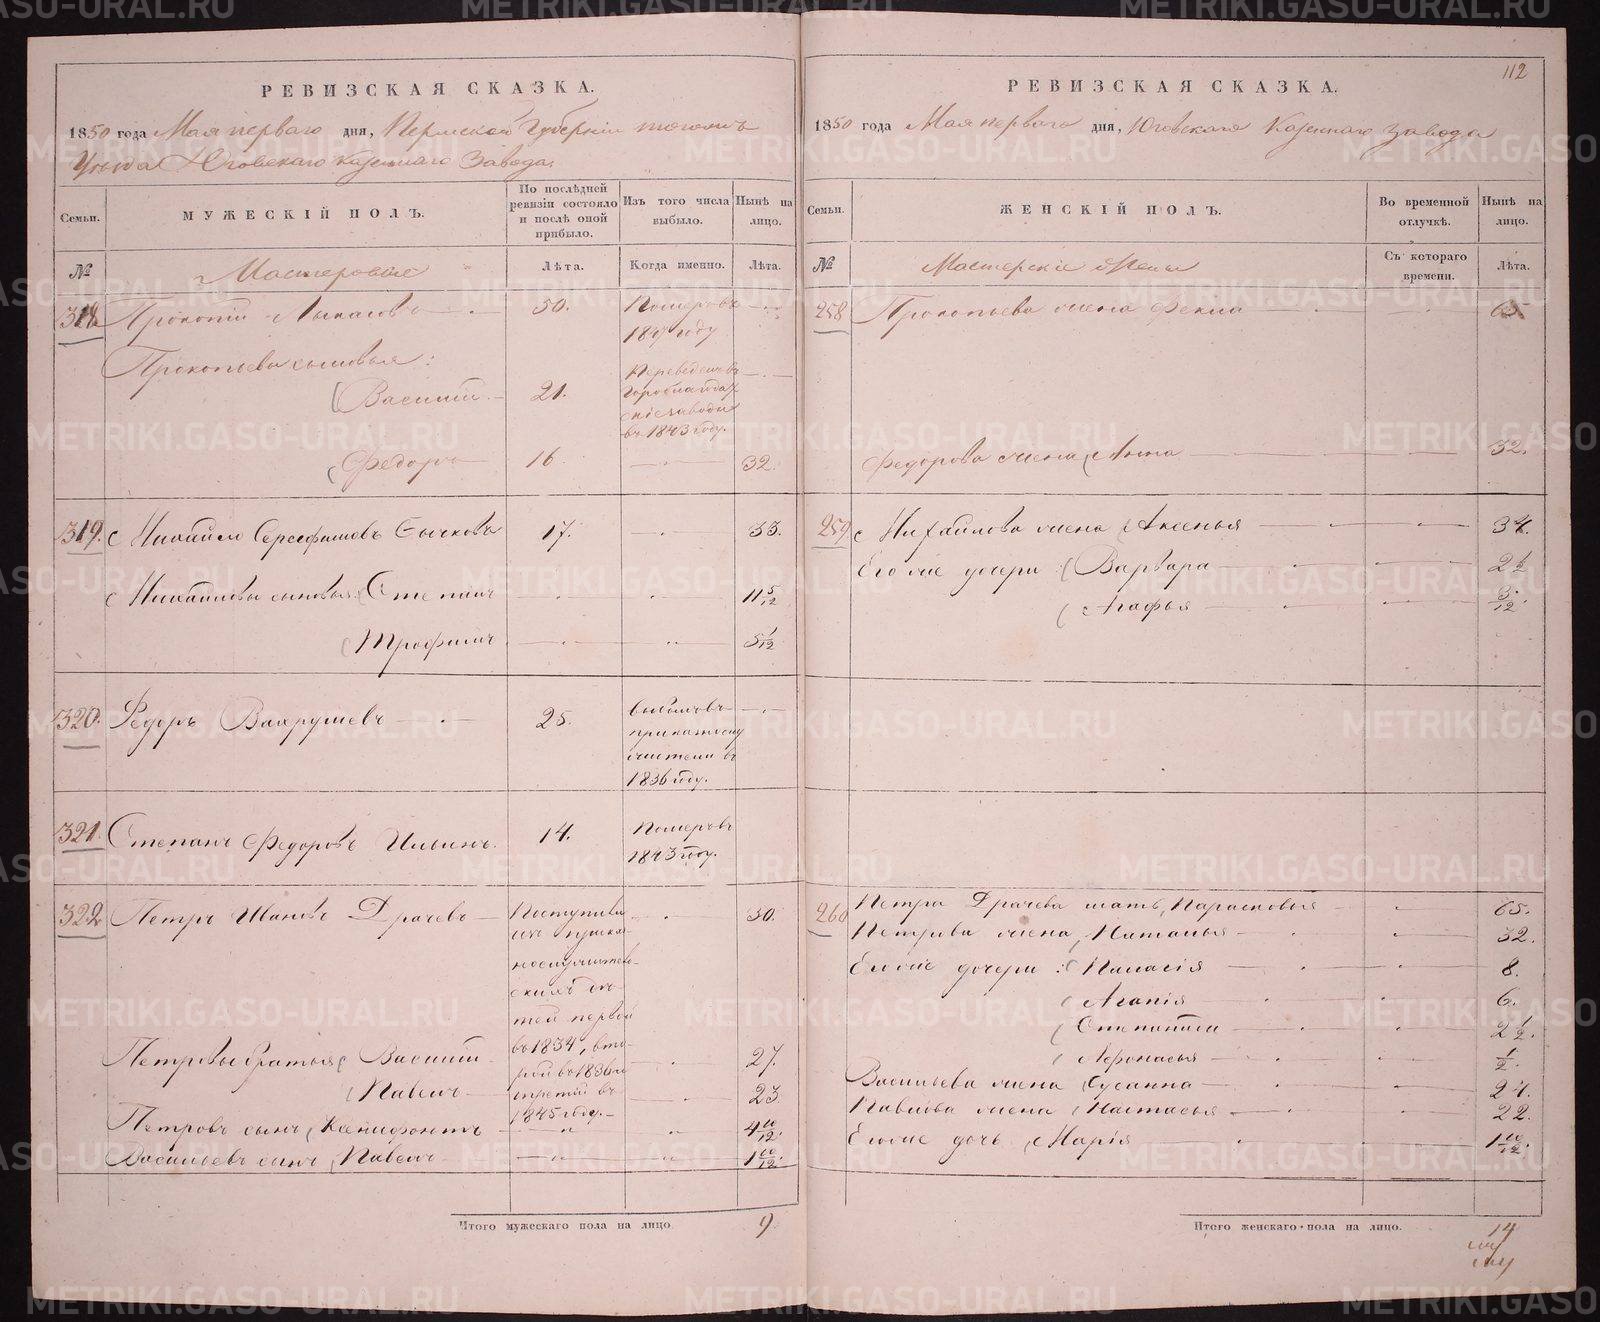 РЕВИЗСКАЯ СКАЗКА.
1850 года Мая перваго дня, Пермской Губернии тогожъ
Уѣзда Юговскаго Казеннаго Завода.
Семьи. МУЖЕСКІЙ ПОЛЪ. По послѣдней ревизіи состояло и послѣ оной прибыло. Изъ того числа выбыло. Нынѣ на лицо.
№ Мастеровые Лѣта. Когда именно. Лѣта.
318. Прокопій 50. Померъ въ
184 году
Прокопьева сыновья:
Василій 21. Переведенъ въ
заводы
въ 1843 году.
Федоръ 16. 32.
319. Михайло Серефимовъ Бычковъ 17. 33.
Михайловы сыновья Степанъ 11 5/12
Трофимъ 5 1/12
320. Федоръ Вахрушевъ 25. въ
1836 году.
321. Степанъ Федоровъ Ильинъ. 14. Померъ въ
1843 году.
322. Петръ Ивановъ Драчевъ Поступили 30.
изъ
тей первой
въ 1834, вто-
рой въ 1836 и
третій въ
1845 году.
Петровы братья Василій 27.
Павелъ 23.
Петровъ сынъ Ксенофонтъ 4 10/12
Васильевъ сынъ Павелъ 1 10/12
Итого мужескаго пола на лицо 9.
112
РЕВИЗСКАЯ СКАЗКА.
1850 года Мая перваго дня, Юговскаго Казеннаго Завода
Семьи. ЖЕНСКІЙ ПОЛЪ. Во временной отлучкѣ. Нынѣ на лицо.
№ Мастерскіе Жены Съ котораго времени. Лѣта.
258 Прокопьева жена Фекла 65.
Федорова жена Анна 32.
259. Михайлова жена Аксенья 34.
Его же дочери: Варвара 2 1/2
Агафья 3/12.
260 Петра Драчева мать, Парасковья 65.
Петрова жена, Наталья 32.
Его же дочери: Пелагія 8.
Агапія 6.
Степанида 2 1/2.
Афонасья 1/2.
Васильева жена Сусанна 24.
Павлова жена Настасья 22.
Его же дочь Марія 1 10/12.
Итого женскаго пола на лицо. 14
METRIKI.GASO-URAL.RU